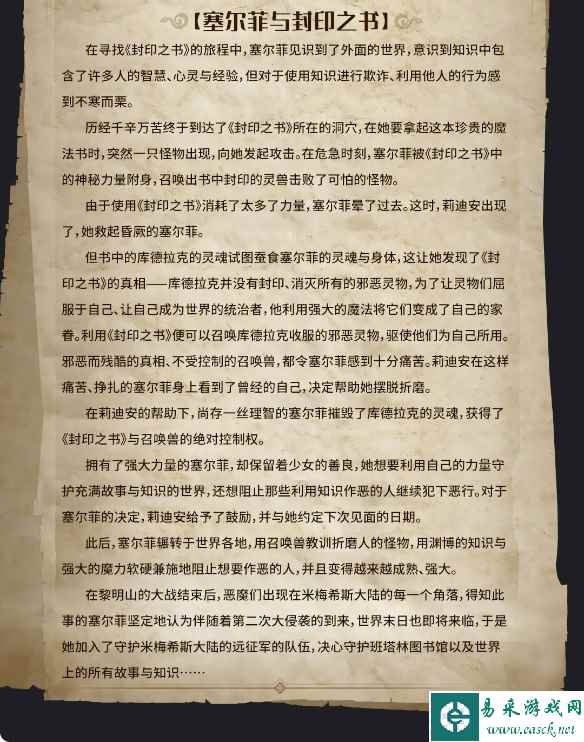 【塞尔菲与封印之书】
在寻找《封印之书》的旅程中，塞尔菲见识到了外面的世界，意识到知识中包
含了许多人的智慧、心灵与经验，但对于使用知识进行欺诈、利用他人的行为感
到不寒而栗。
历经千辛万苦终于到达了《封印之书》所在的洞穴，在她要拿起这本珍贵的魔
法书时，突然一只怪物出现，向她发起攻击。在危急时刻，塞尔菲被《封印之书》中
的神秘力量附身，召唤出书中封印的灵兽击败了可怕的怪物。
由于使用《封印之书》消耗了太多了力量，塞尔菲晕了过去。这时，莉迪安出现
了，她救起昏厥的塞尔菲。
但书中的库德拉克的灵魂试图蚕食塞尔菲的灵魂与身体，这让她发现了《封
印之书》的真相——库德拉克并没有封印、消灭所有的邪恶灵物，为了让灵物们屈
服于自己、让自己成为世界的统治者，他利用强大的魔法将它们变成了自己的家
眷。利用《封印之书》便可以召唤库德拉克收服的邪恶灵物，驱使他们为自己所用。
邪恶而残酷的真相、不受控制的召唤兽，都令塞尔菲感到十分痛苦。莉迪安在这样
痛苦、挣扎的塞尔菲身上看到了曾经的自己，决定帮助她摆脱折磨。
在莉迪安的帮助下，尚存一丝理智的塞尔菲摧毁了库德拉克的灵魂，获得了
《封印之书》与召唤兽的绝对控制权。
拥有了强大力量的塞尔菲，却保留着少女的善良，她想要利用自己的力量守
护充满故事与知识的世界，还想阻止那些利用知识作恶的人继续犯下恶行。对于
塞尔菲的决定，莉迪安给予了鼓励，并与她约定下次见面的日期。
此后，塞尔菲辗转于世界各地，用召唤兽教训折磨人的怪物，用渊博的知识与
强大的魔力软硬兼施地阻止想要作恶的人，并且变得越来越成熟、强大。
在黎明山的大战结束后，恶魔们出现在米梅希斯大陆的每一个角落，得知此
事的塞尔菲坚定地认为伴随着第二次大侵袭的到来，世界末日也即将来临，于是
她加入了守护米梅希斯大陆的远征军的队伍，决心守护班塔林图书馆以及世界
上的所有故事与知识……
易采游戏网
www.easck.net